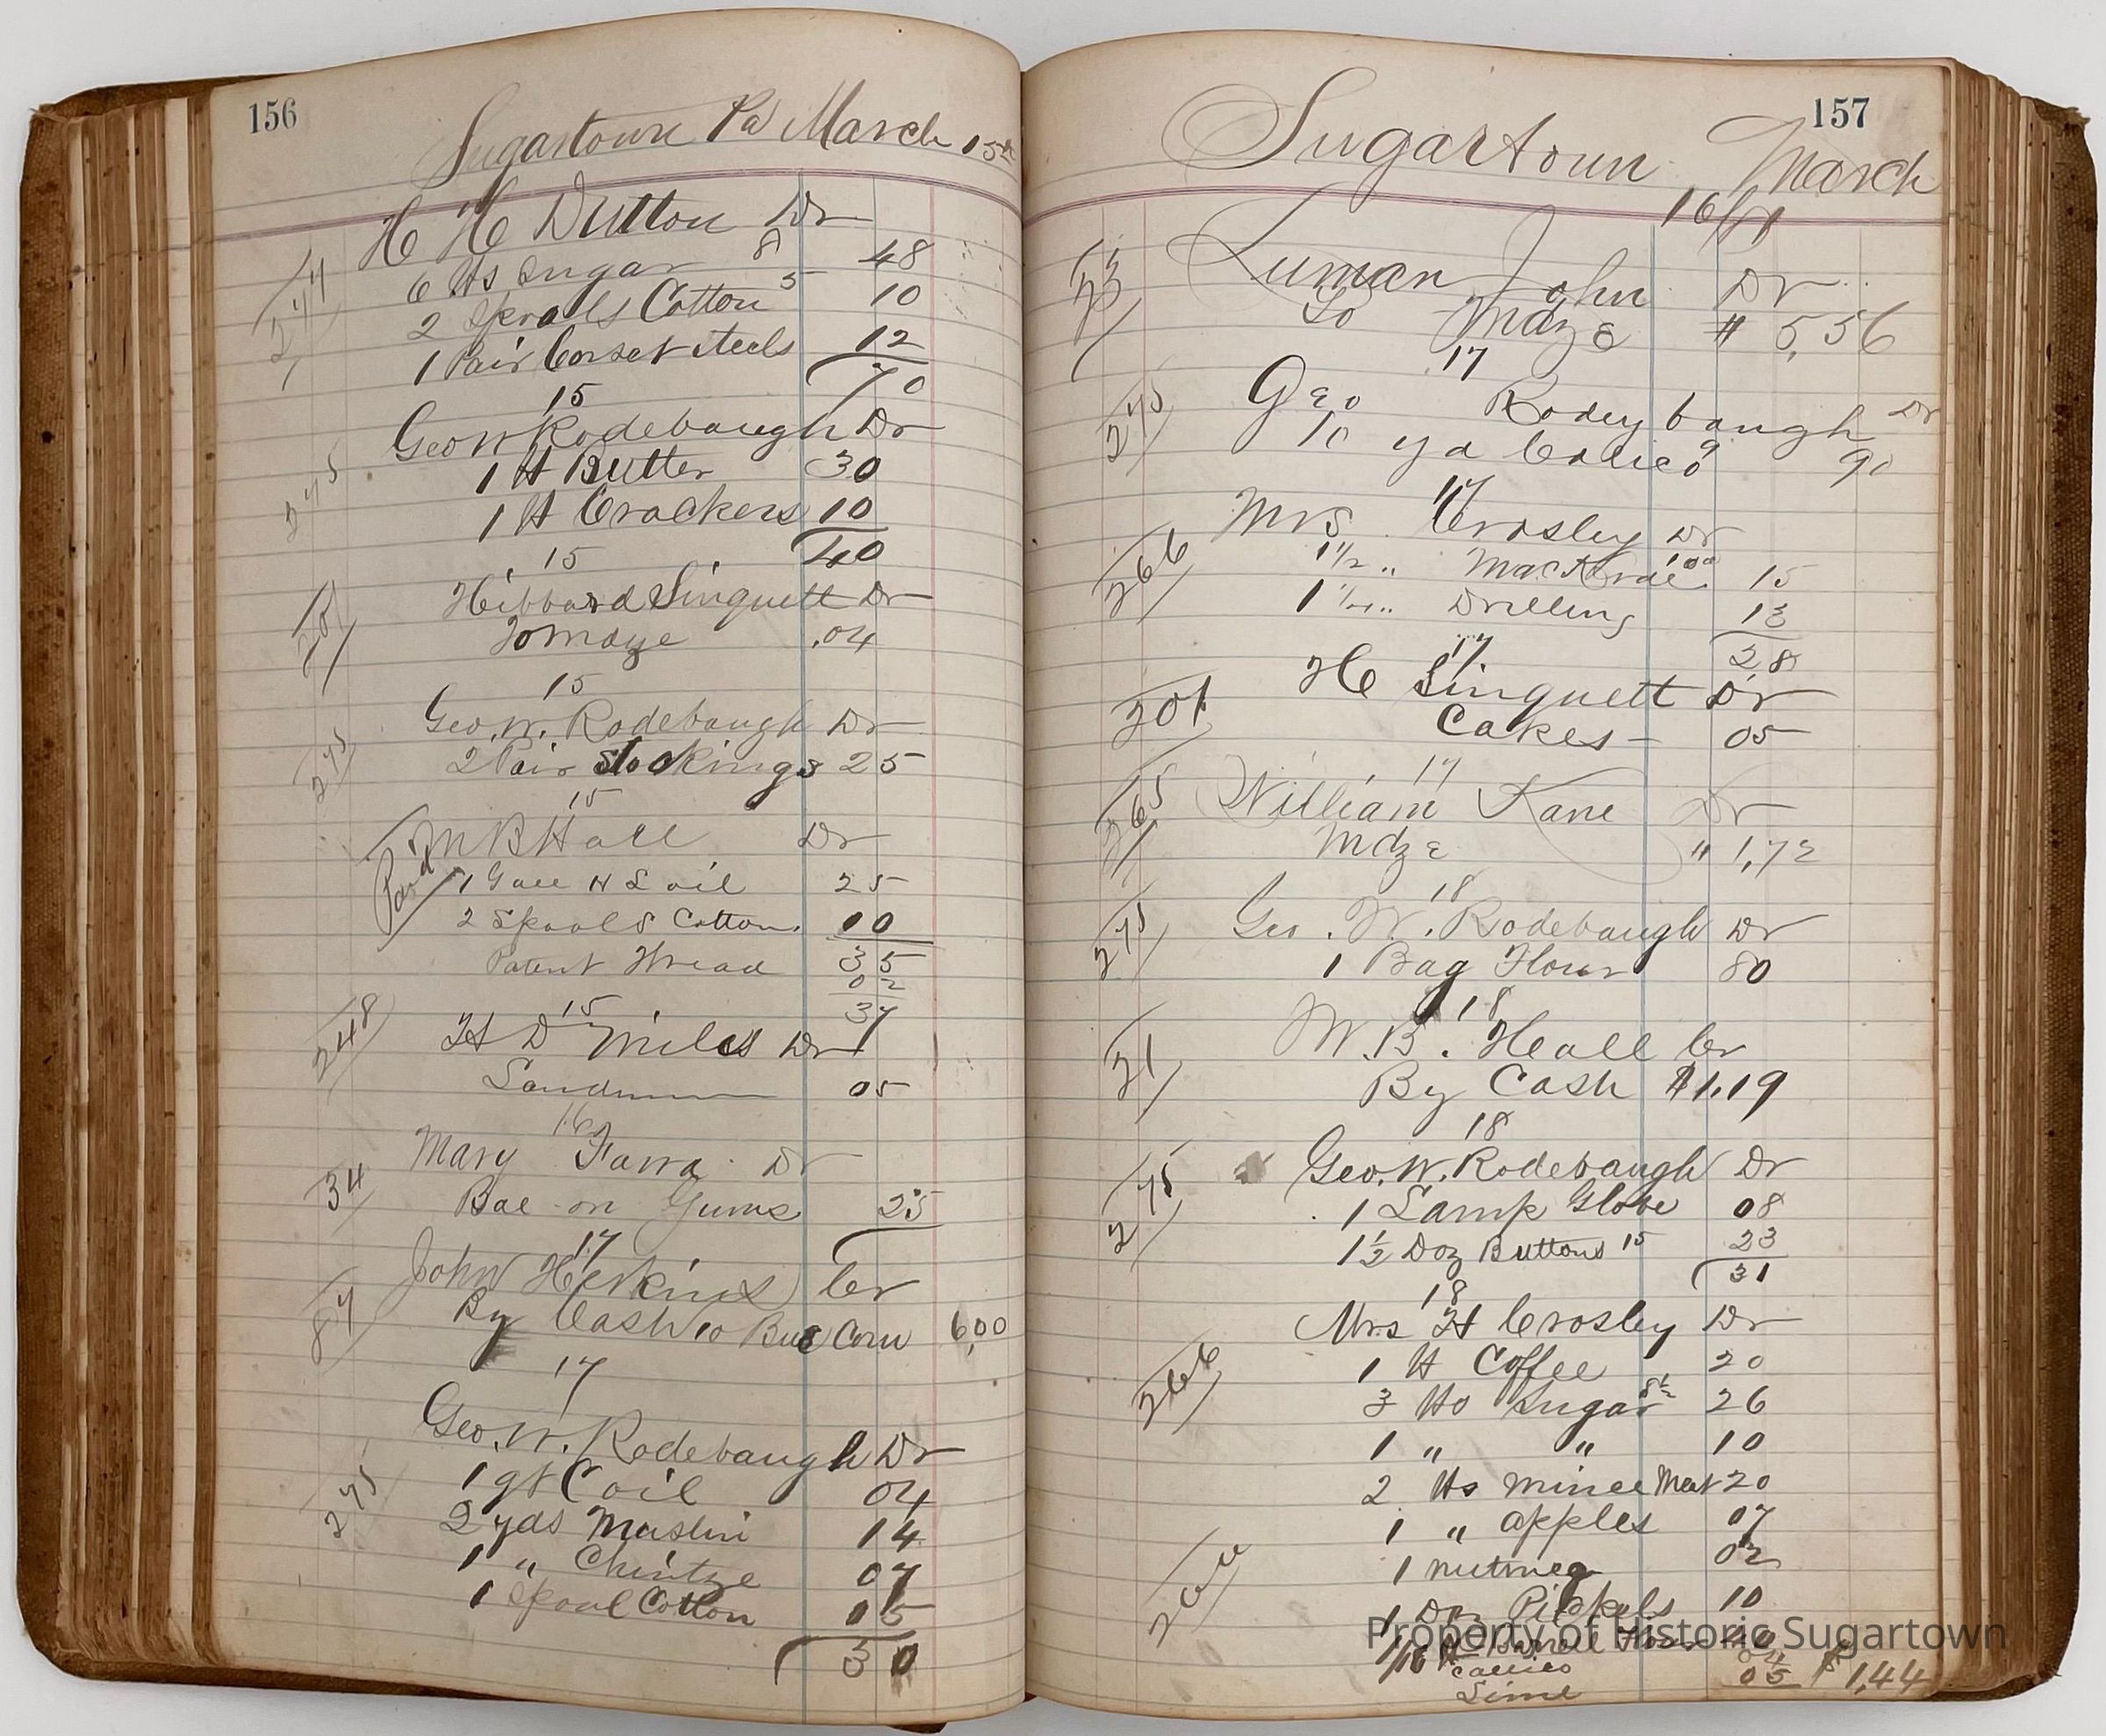 156
Sugartown Pa March 15th
H H Dutton Dr
244
6 lbs Sugar 8 48
2 Spools Cotton 5 10
1 Pair Corset Steels 12
70
15
Geo W Rodebaugh Dr
275
1 lb Butter 30
1 lb Crackers 10
40
15
Hibbard Singuett Dr
201
To Mdze .04
15
Geo. W. Rodebaugh Dr
275
2 Pair Stockings 25
15
M B Hall Dr
Paid
1 Gall H L oil 25
2 Spools Cotton 10
35
Patent Thread 02
37
15
248
H D Miles Dr
05
16
Mary Farra Dr
34
Bal on Gums 25
17
John Hoskins Cr
87
By Cash 10 Bus Corn 6,00
17
Geo. W. Rodebaugh Dr
275
1 qt C oil 04
2 yds Muslin 14
1 " Chintze 07
1 Spool Cotton 05
30
157
Sugartoun March
16/17
Luman John Dr
23
To Mdze # 5,56
17
Geo Rodeybaugh Dr
275
10 yd Calico 9 90
17
Mrs. Crosley Dr
266
1 1/2 " 15
Drilling 13
28
17
H Singuett Dr
201
Cakes - 05
17
William Kane Dr
265
Mdze " 1,72
18
Geo. W. Rodebaugh Dr
275
1 Bag Flour 80
18
M. B. Heall Cr
21
By Cash $1.19
18
Geo. W. Rodebaugh Dr
275
1 Lamp Globe 08
1 1/2 Doz Buttons 15 23
31
18
Mrs H Crosley Dr
266
1 lb Coffee 20
3 lbs Sugar 8 1/2 26
1 " " 10
2 lbs Mince Meat 20
1 " apples 07
1 nutmeg 02
1 Doz Pickels 10
Barrell Flour
Calico
Lime 05 $ 1,44
Property of Historic Sugartown